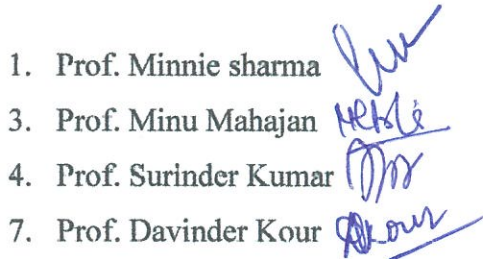 1. Prof. Minnie sharma
3. Prof. Minu Mahajan
4. Prof. Surinder Kumar
7. Prof. Davinder Kour DKour